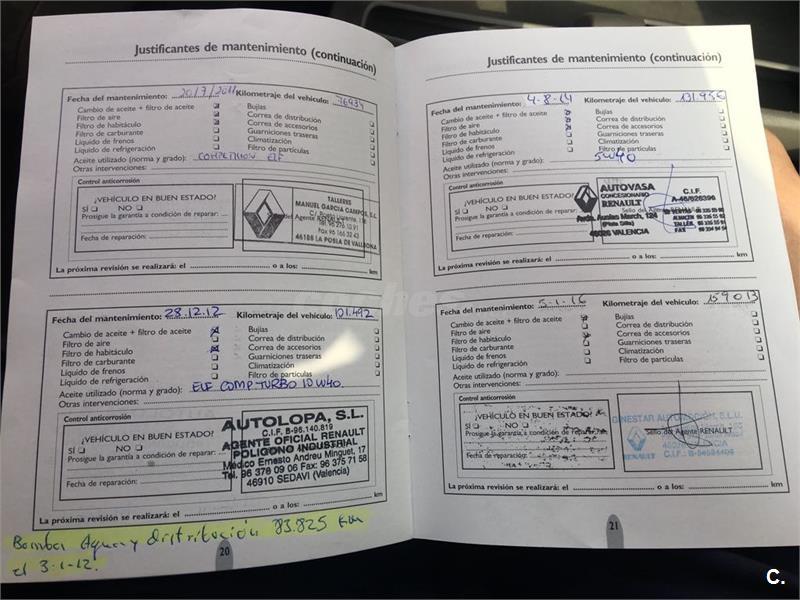 Justificantes de mantenimiento (continuación)
Fecha del mantenimiento: 20/7/2011 Kilometraje del vehículo: 76934
Cambio de aceite + filtro de aceite
Filtro de aire
Filtro de habitáculo
Filtro de carburante
Líquido de frenos
Líquido de refrigeración
Bujías
Correa de distribución
Correa de accesorios
Guarniciones traseras
Climatización
Filtro de partículas
Aceite utilizado (norma y grado): COMPETITION ELF
Otras intervenciones:
Control anticorrosión
¿VEHÍCULO EN BUEN ESTADO?
SÍ NO
Prosigue la garantía a condición de reparar:
Fecha de reparación:
TALLERES
MANUEL GARCIA CAMPOS, S.L.
46185 LA POBLA DE VALLBONA
La próxima revisión se realizará: el o a los: km
Fecha del mantenimiento: 28.12.12 Kilometraje del vehículo: 101.492
Cambio de aceite + filtro de aceite
Filtro de aire
Filtro de habitáculo
Filtro de carburante
Líquido de frenos
Líquido de refrigeración
Bujías
Correa de distribución
Correa de accesorios
Guarniciones traseras
Climatización
Filtro de partículas
Aceite utilizado (norma y grado): ELF COMP.TURBO 10W40
Otras intervenciones:
Control anticorrosión
¿VEHÍCULO EN BUEN ESTADO?
SÍ NO
Prosigue la garantía a condición de reparar:
Fecha de reparación:
AUTOLOPA, S.L.
C.I.F. B-96.140.819
AGENTE OFICIAL RENAULT
POLIGONO INDUSTRIAL
Médico Ernesto Andreu Minguet, 17
Tel. 96 378 09 06 Fax: 96 375 71 58
46910 SEDAVI (Valencia)
La próxima revisión se realizará: el o a los: km
Bomba Agua y distribución 83.825 Km
el 3-1-12.
20
Justificantes de mantenimiento (continuación)
Fecha del mantenimiento: 4-8-14 Kilometraje del vehículo: 131.956
Cambio de aceite + filtro de aceite
Filtro de aire
Filtro de habitáculo
Filtro de carburante
Líquido de frenos
Líquido de refrigeración
Bujías
Correa de distribución
Correa de accesorios
Guarniciones traseras
Climatización
Filtro de partículas
Aceite utilizado (norma y grado): 5W40
Otras intervenciones:
Control anticorrosión
¿VEHÍCULO EN BUEN ESTADO?
SÍ NO
Prosigue la garantía a condición de reparar:
Fecha de reparación:
AUTOVASA
CONCESIONARIO
RENAULT
Avda. Ausias March, 124
46026 VALENCIA
C.I.F.
A-46/628396
La próxima revisión se realizará: el o a los: km
Fecha del mantenimiento: 5-1-16 Kilometraje del vehículo: 159013
Cambio de aceite + filtro de aceite
Filtro de aire
Filtro de habitáculo
Filtro de carburante
Líquido de frenos
Líquido de refrigeración
Bujías
Correa de distribución
Correa de accesorios
Guarniciones traseras
Climatización
Filtro de partículas
Aceite utilizado (norma y grado):
Otras intervenciones:
Control anticorrosión
¿VEHÍCULO EN BUEN ESTADO?
SÍ NO
Prosigue la garantía a condición de reparar:
Fecha de reparación:
GINESTAR AUTOMOCIÓN, S.L.U.
Sello del Agente RENAULT
RENAULT
La próxima revisión se realizará: el o a los: km
21
C.